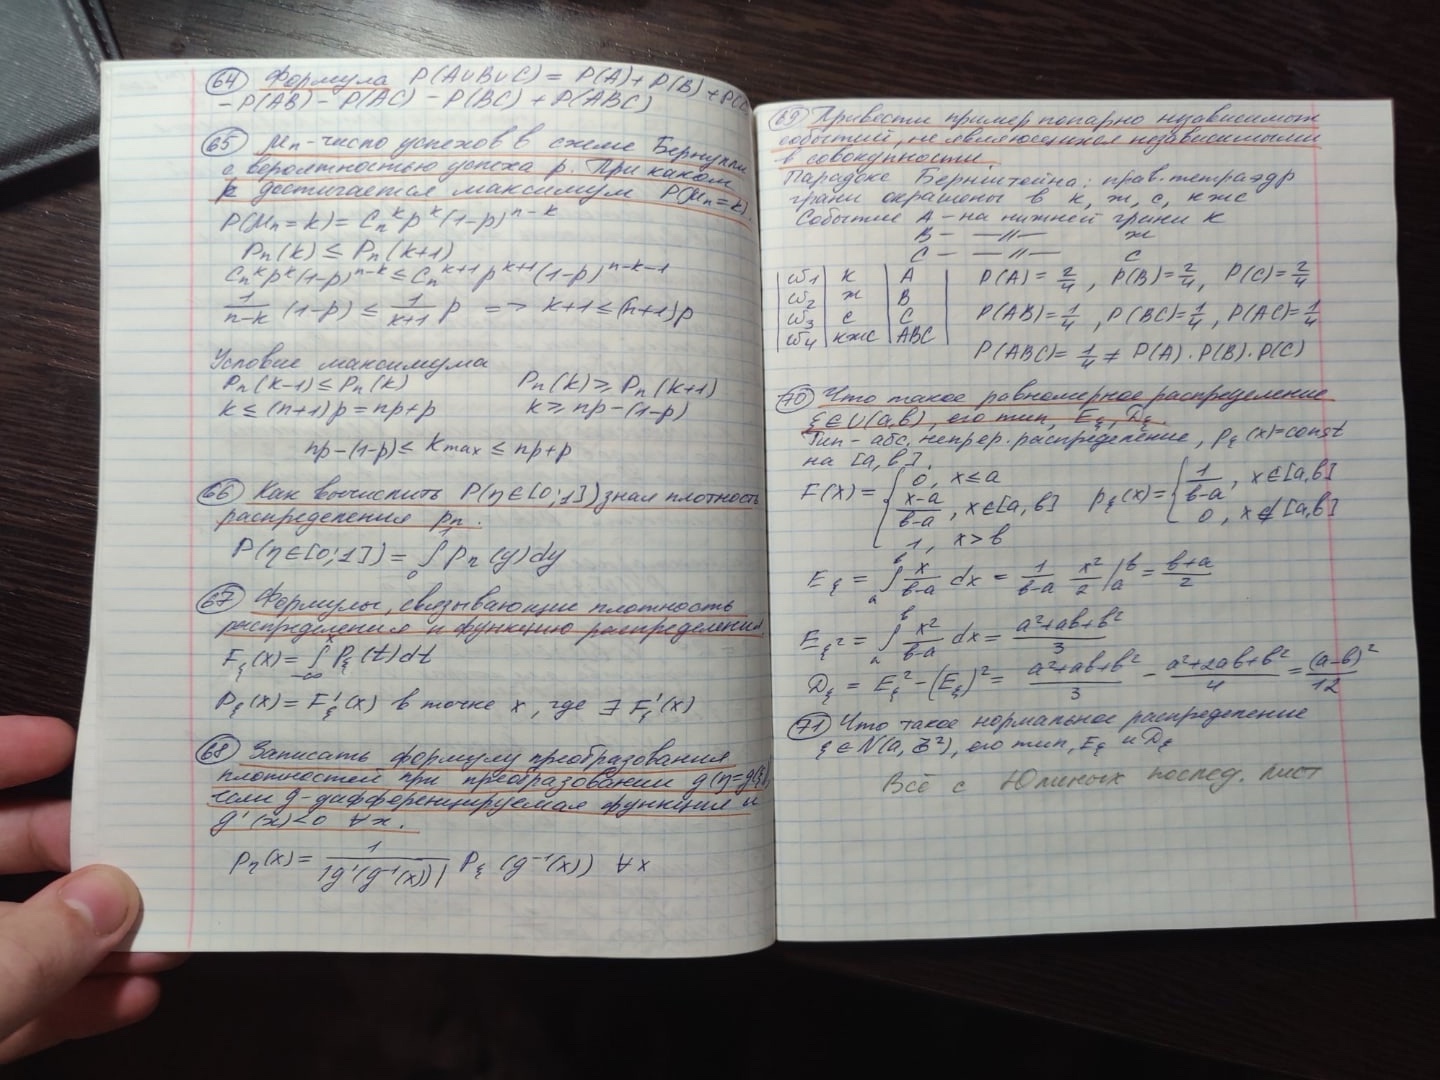 64 Формула P(A∪B∪C) = P(A) + P(B) + P(C)
- P(AB) - P(AC) - P(BC) + P(ABC)
65 μn - число успехов в схеме Бернулли
с вероятностью успеха p. При каком
k достигается максимум P(μn=k).
P(μn=k) = Cn^k p^k (1-p)^n-k
Pn(k) ≤ Pn(k+1)
Cn^k p^k (1-p)^n-k ≤ Cn^k+1 p^k+1 (1-p)^n-k-1
1/(n-k) (1-p) ≤ 1/(k+1) p => k+1 ≤ (n+1)p
Условие максимума
Pn(k-1) ≤ Pn(k) Pn(k) ≥ Pn(k+1)
k ≤ (n+1)p = np+p k ≥ np-(1-p)
np-(1-p) ≤ Kmax ≤ np+p
66 Как вычислить P(η∈[0;1]) зная плотность
распределения pη.
P(η∈[0;1]) = ∫₀¹ pη(y)dy
67 Формулы, связывающие плотность
распределения и функцию распределения.
Fξ(x) = ∫₋∞ˣ Pξ(t)dt
Pξ(x) = F'ξ(x) в точке x, где ∃ F'ξ(x)
68 Записать формулу преобразования
плотностей при преобразовании g(η=g(ξ)),
если g - дифференцируемая функция и
g'(x)<0 ∀x.
Pη(x) = 1/|g'(g⁻¹(x))| Pξ(g⁻¹(x)) ∀x
69 Привести пример попарно независимых
событий, не являющихся независимыми
в совокупности.
Парадокс Бернштейна: прав. тетраэдр
грани окрашены в к, ж, с, кжс
Событие A - на нижней грани к
B - —//— ж
C - —//— с
ω1 | к | A P(A) = 2/4, P(B) = 2/4, P(C) = 2/4
ω2 | ж | B
ω3 | с | C P(AB) = 1/4, P(BC) = 1/4, P(AC) = 1/4
ω4 | кжс | ABC
P(ABC) = 1/4 ≠ P(A)·P(B)·P(C)
70 Что такое равномерное распределение
ξ∈U(a,b), его тип, Eξ, Dξ.
Тип - абс. непрер. распределение, pξ(x)=const
на [a,b].
F(x) = { 0, x≤a
(x-a)/(b-a), x∈[a,b]
1, x>b
pξ(x) = { 1/(b-a), x∈[a,b]
0, x∉[a,b]
Eξ = ∫ₐᵇ x/(b-a) dx = 1/(b-a) x²/2 |ₐᵇ = (b+a)/2
Eξ² = ∫ₐᵇ x²/(b-a) dx = (a²+ab+b²)/3
Dξ = Eξ² - (Eξ)² = (a²+ab+b²)/3 - (a²+2ab+b²)/4 = (a-b)²/12
71 Что такое нормальное распределение
ξ∈N(a, σ²), его тип, Eξ и Dξ
Всё с Юлиных послед. лист